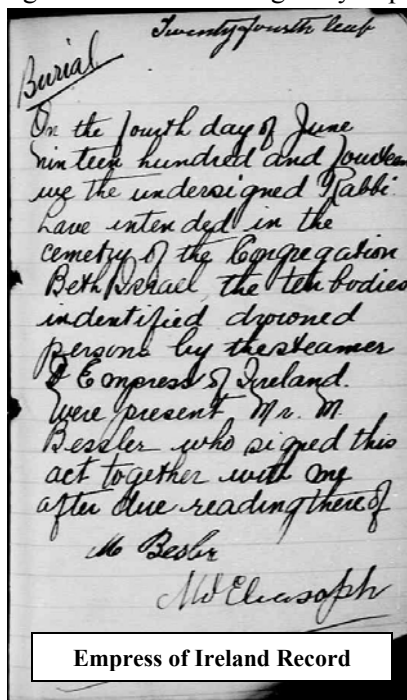 Twenty fourth leaf
Burial
On the fourth day of June
nineteen hundred and fourteen
we the undersigned Rabbi
have intended in the
cemetry of the Congregation
Beth Israel, the ten bodies
indentified drowned
persons by the steamer
Empress of Ireland.
Were present Mr. M.
Bessler who signed this
act together with me
after due reading there of
M Besler
MD Eliasoph
Empress of Ireland Record